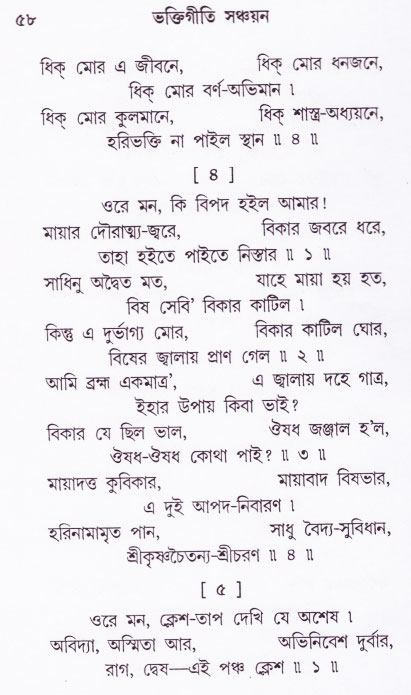 ৫৮ ভক্তিগীতি সঞ্চয়ন
ধিক্ মোর এ জীবনে, ধিক্ মোর ধনজনে,
ধিক্ মোর বর্ণ-অভিমান ।
ধিক্ মোর কুলমানে, ধিক্ শাস্ত্র-অধ্যয়নে,
হরিভক্তি না পাইল স্থান ॥ ৪ ॥
[ ৪ ]
ওরে মন, কি বিপদ হইল আমার!
মায়ার দৌরাত্ম্য-জ্বরে, বিকার জবরে ধরে,
তাহা হইতে পাইতে নিস্তার ॥ ১ ॥
সাধিনু অদ্বৈত মত, যাহে মায়া হয় হত,
বিষ সেবি' বিকার কাটিল ।
কিন্তু এ দুর্ভাগ্য মোর, বিকার কাটিল ঘোর,
বিষের জ্বালায় প্রাণ গেল ॥ ২ ॥
আমি ব্রহ্ম একমাত্র', এ জ্বালায় দহে গাত্র,
ইহার উপায় কিবা ভাই?
বিকার যে ছিল ভাল, ঔষধ জঞ্জাল হ'ল,
ঔষধ-ঔষধ কোথা পাই? ॥ ৩ ॥
মায়াদত্ত কুবিকার, মায়াবাদ বিষভার,
এ দুই আপদ-নিবারণ ।
হরিনামামৃত পান, সাধু বৈদ্য-সুবিধান,
শ্রীকৃষ্ণচৈতন্য-শ্রীচরণ ॥ ৪ ॥
[ ৫ ]
ওরে মন, ক্লেশ-তাপ দেখি যে অশেষ ।
অবিদ্যা, অস্মিতা আর, অভিনিবেশ দুর্বার,
রাগ, দ্বেষ—এই পঞ্চ ক্লেশ ॥ ১ ॥